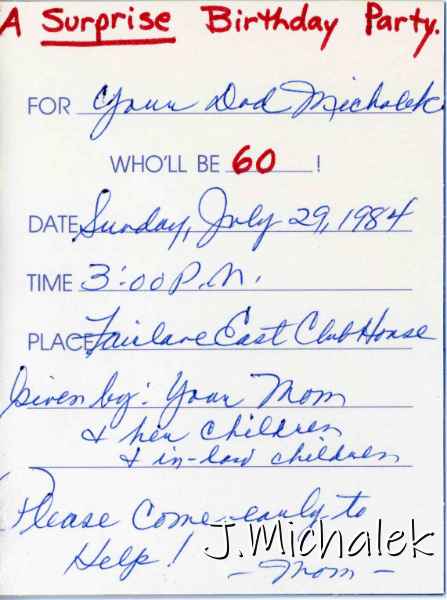 A Surprise Birthday Party.
FOR Your Dad Michalek
WHO'LL BE 60!
DATE Sunday, July 29, 1984
TIME 3:00 P.M.
PLACE Fairlane East Club House
Given by: Your Mom
& her children
& in-law children
Please Come early to
Help!
J.Michalek
- Mom -